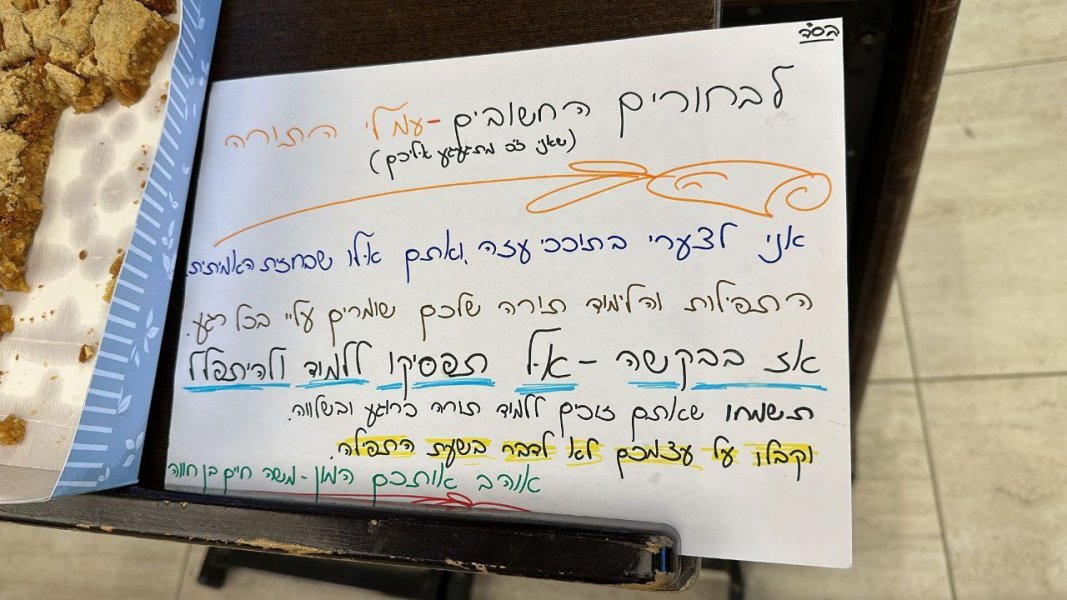 בס"ד
לבחורים החשובים - עמלי התורה
(שאני כ"כ מתגעגע אליכם)
אני לצערי בתוככי עזה, ואתם אלו שבחזית האמיתית.
התפילות והלימוד תורה שלכם שומרים עליי בכל רגע.
אז בבקשה - אל תפסיקו ללמוד ולהיתפלל
תשמחו שאתם זוכים ללמוד תורה ברוגע ובשלווה.
וקבלו על עצמכם לא לדבר בשעת התפלה.
אוהב אותכם המון - משה חיים בן חווה